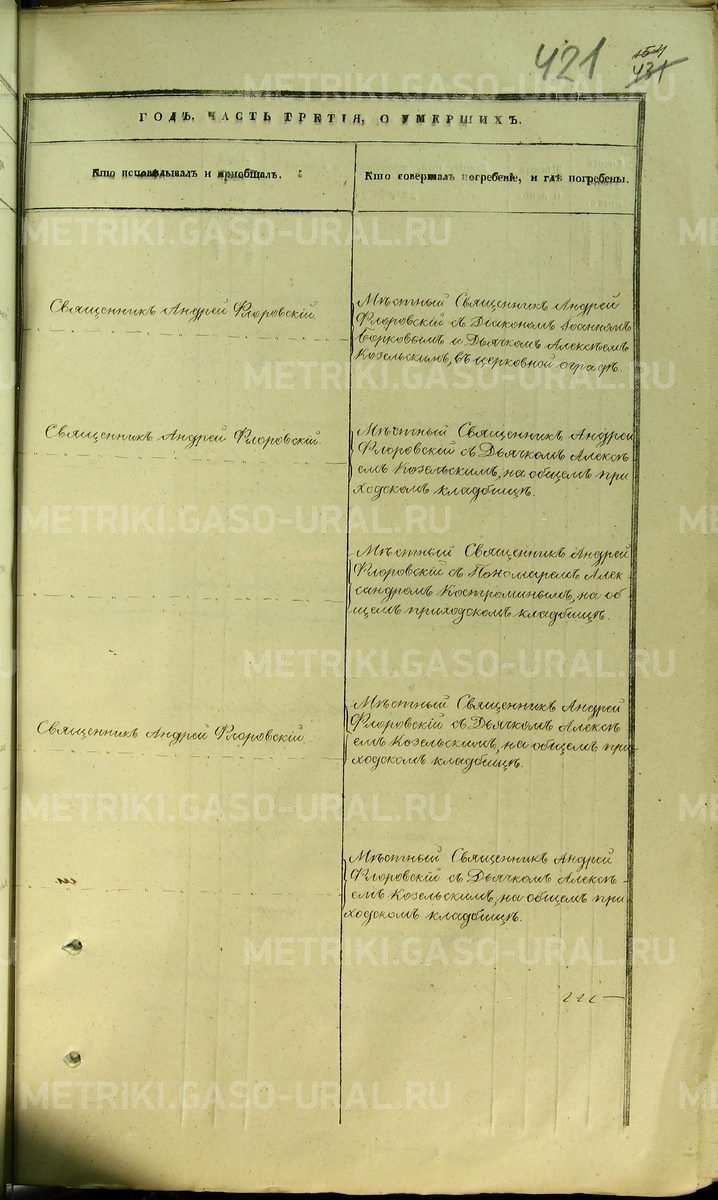 421
154
431
ГОДЪ, ЧАСТЬ ТРЕТІЯ, О УМЕРШИХЪ.
Кто исповѣдывалъ и пріобщалъ.
Кто совершалъ погребеніе, и гдѣ погребены.
Священникъ Андрей Флоровскій.
Мѣстный Священникъ Андрей
Флоровскій съ Діакономъ Іоанномъ
Борковымъ и Дьячкомъ Алексѣемъ
Козельскимъ, въ церковной оградѣ.
Священникъ Андрей Флоровскій.
Мѣстный Священникъ Андрей
Флоровскій съ Дьячкомъ Алексѣ
емъ Козельскимъ, на общемъ при
ходскомъ кладбищѣ.
Мѣстный Священникъ Андрей
Флоровскій съ Пономаремъ Алек-
сандромъ Костроминымъ, на об
щемъ приходскомъ кладбищѣ.
Священникъ Андрей Флоровскій
Мѣстный Священникъ Андрей
Флоровскій съ Дьячкомъ Алексѣ
емъ Козельскимъ, на общемъ при-
ходскомъ кладбищѣ.
Мѣстный Священникъ Андрей
Флоровскій съ Дьячкомъ Алексѣ-
емъ Козельскимъ, на общемъ при
ходскомъ кладбищѣ.
METRIKI.GASO-URAL.RU
METRIKI.GASO-URAL.RU
METRIKI.GASO-URAL.RU
METRIKI.GASO-URAL.RU
METRIKI.GASO-URAL.RU
METRIKI.GASO-URAL.RU
METRIKI.GASO-URAL.RU
METRIKI.GASO-URAL.RU